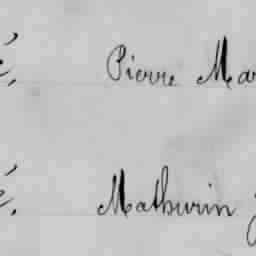 é, Pierre Mar
é, Mathurin J